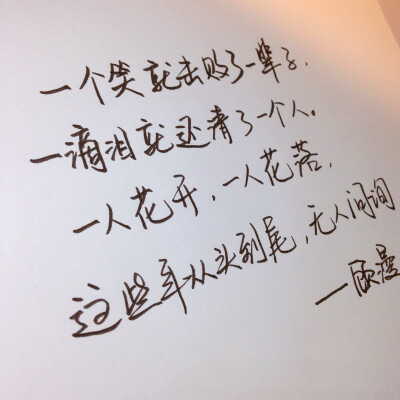 一个笑就击败了一辈子,
一滴泪就还清了一个人。
一人花开,一人花落,
这些年从头到尾,无人问询
—顾漫